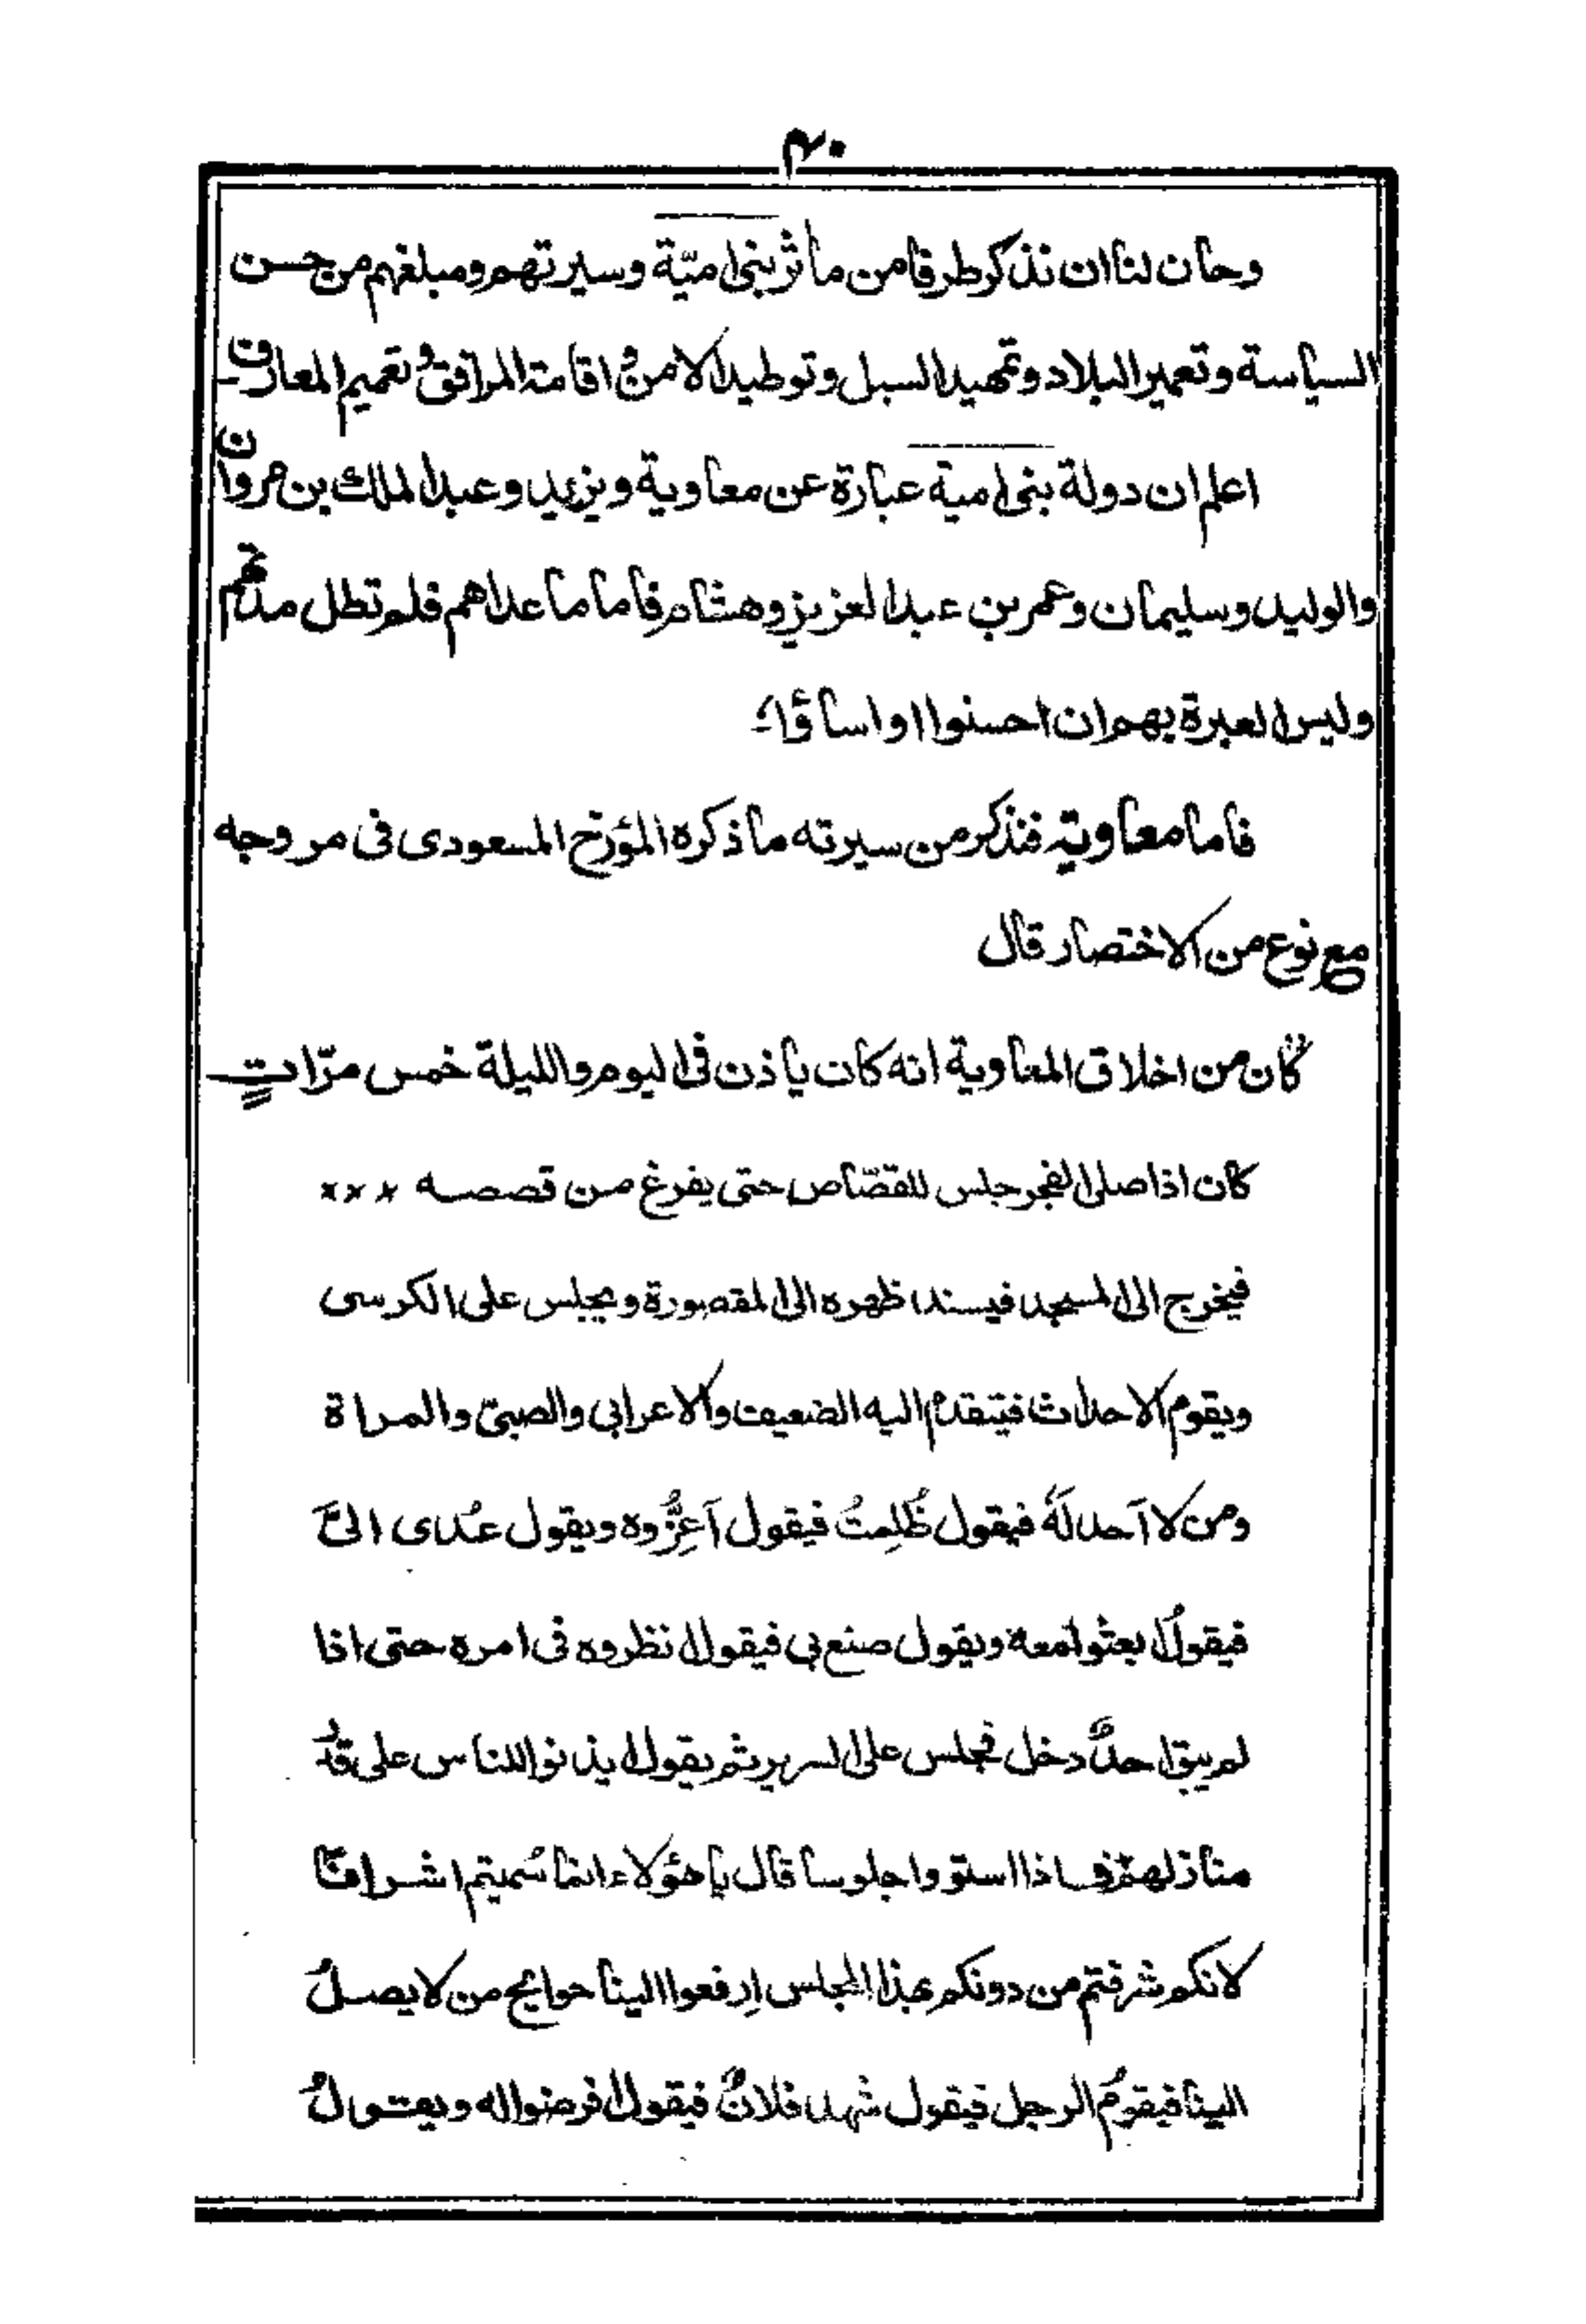 ۴۰
وحان لنا ان نذكر طرفا من مأثر بنی امیّة وسیرتهم ومبلغهم من حسن
السیاسة وتعمیر البلاد وتمهید السبل وتوطید الامن و اقامة المرافق و تعمیم المعارف
اعلم ان دولة بنی امیة عبارة عن معاویة ویزید وعبد الملك بن مروان
والولید وسلیمان وعمر بن عبد العزیز وهشام فاما ما عداهم فلم تطل مدتهم
ولیس العبرة بهم ان احسنوا او اساؤا،
فاما معاویة فنذكر من سیرته ما ذكره المؤرخ المسعودی فی مروجه
مع نوع من الاختصار قال
كان من اخلاق المعاویة انه كان یأذن فی الیوم واللیلة خمس مرّاتٍ
كان اذا صلی الفجر جلس للقصّاص حتی یفرغ من قصصه ×××
فیخرج الی المسجد فیسند ظهره الی المقصورة ویجلس علی الكرسی
ویقوم الاحداث فیتقدم الیه الضعیف والاعرابی والصبیّ والمراة
ومن لا اَحد لَهٗ فیقول ظُلِمتُ فیقول اَعِزُّوه ویقول عُدی الیَّ
فیقولُ ابعثوا معه ویقول صنع بی فیقول انظروه فی امره حتی اذا
لم یبق احدٌ دخل فجلس علی السریر ثم یقول ایذنوا للناس علی قدر
منازلهم فاذا استووا جلوسا قال یا هؤلاء انما سُمیتم اشرافًا
لانكم شرفتم من دونكم بهذا المجلس اِرفعوا الینا حوایج من لا یصلُ
الینا فیقومُ الرجل فیقول شهد فلانٌ فیقول افرضوا له ویقولُ